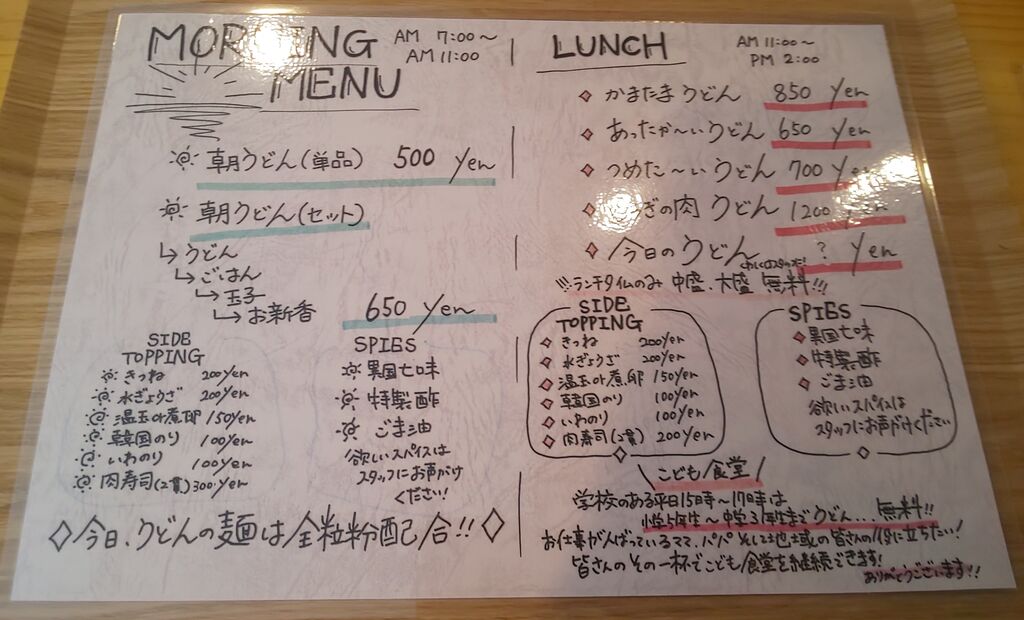 MORNING MENU
AM 7:00～
AM 11:00
朝うどん(単品) 500 Yen
朝うどん(セット)
↳うどん
↳ごはん
↳玉子
↳お新香 650 Yen
SIDE
TOPPING
きつね 200yen
水ぎょうざ 200yen
温玉or煮卵 150yen
韓国のり 100yen
いわのり 100yen
肉寿司(2貫) 300yen
SPIES
異国七味
特製酢
ごま油
欲しいスパイスは
スタッフにお声がけ
ください!
◇今日、うどんの麺は全粒粉配合!!◇
LUNCH
AM 11:00～
PM 2:00
かまたまうどん 850 Yen
あったか～いうどん 650 Yen
つめた～いうどん 700 Yen
ぎの肉うどん 1200 Yen
今日のうどん ? Yen
くわしくはスタッフまで!
ランチタイムのみ 中盛、大盛 無料!!!
SIDE
TOPPING
きつね 200yen
水ぎょうざ 200yen
温玉or煮卵 150yen
韓国のり 100yen
いわのり 100yen
肉寿司(2貫) 200yen
SPIES
異国七味
特製酢
ごま油
欲しいスパイスは
スタッフにお声がけください
\こども食堂/
学校のある平日15時～17時は
小学5年生～中学3年生まで うどん...無料!!
お仕事がんばっているママ、パパ そして地域の皆さんの役に立ちたい!
皆さんのその一杯でこども食堂を継続できます!
ありがとうございます!!